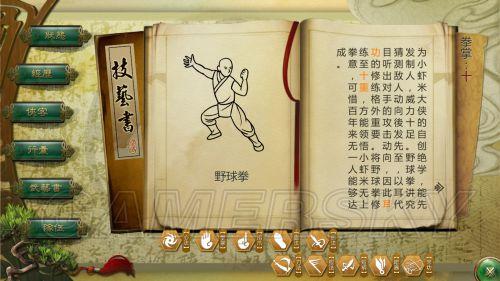 狀態
經歷
俠客
行囊
武藝書
隊伍
技藝書
野球拳
拳掌：十
为小虾米大侠的自创绝学，能先
发制人，威力十足。野球拳讲究
猜测敌人动向，後发先至，以耳代
目听出对手的攻击动向，因此耳
功的修练格外重要。将野球拳修
练至十重，方能领悟小虾米无上
拳意，可惜百年来无一人能够达
成，
GAMERSKY